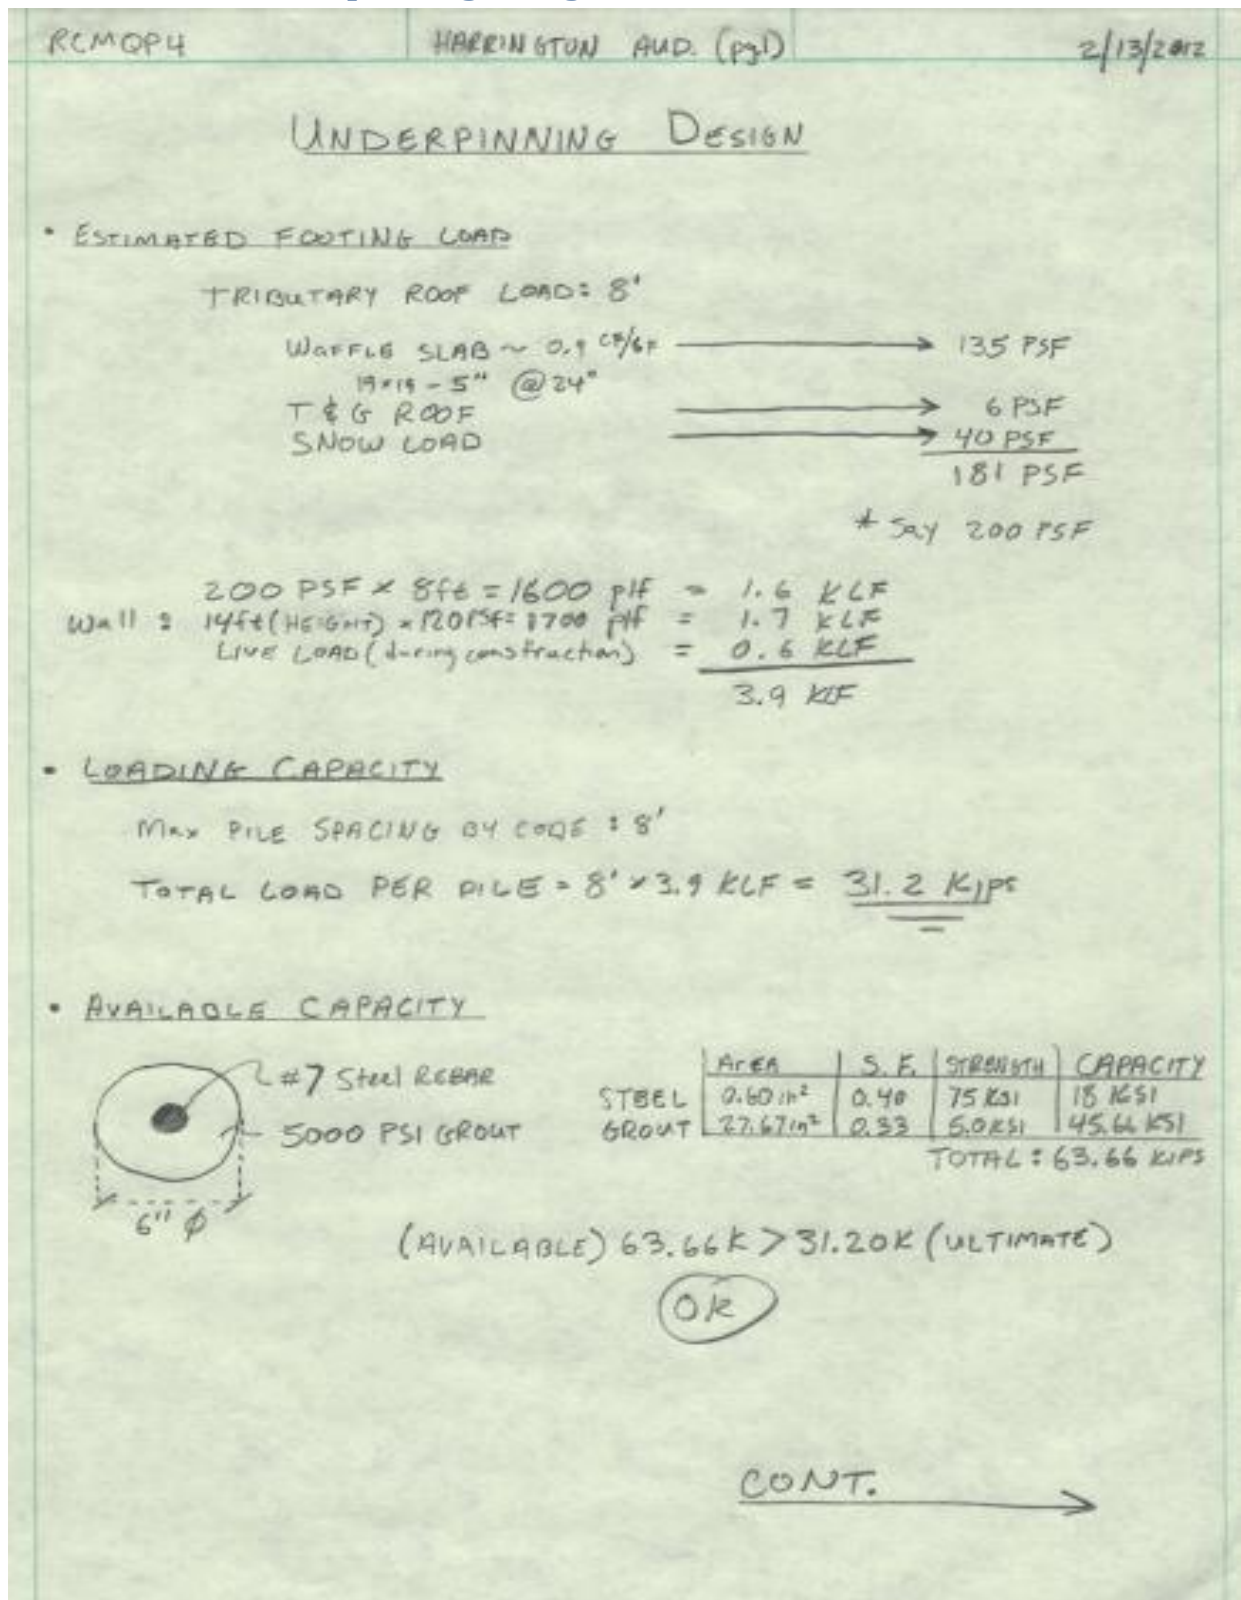 RCMOP4 HARRINGTON AUD. (pg1) 2/13/2012
UNDERPINNING DESIGN
• ESTIMATED FOOTING LOAD
TRIBUTARY ROOF LOAD: 8'
WAFFLE SLAB ~ 0.9 CF/SF → 135 PSF
19×19 - 5" @ 24"
T & G ROOF → 6 PSF
SNOW LOAD → 40 PSF
181 PSF
* Say 200 PSF
200 PSF × 8ft = 1600 plf = 1.6 KLF
Wall : 14ft (HEIGHT) × 120 PSF = 1700 plf = 1.7 KLF
LIVE LOAD (during construction) = 0.6 KLF
3.9 KLF
• LOADING CAPACITY
Max PILE SPACING BY CODE : 8'
TOTAL LOAD PER PILE = 8' × 3.9 KLF = 31.2 KIPS
• AVAILABLE CAPACITY
AREA S.F. STRENGTH CAPACITY
#7 Steel REBAR
STEEL 0.60 in² 0.40 75 KSI 18 KSI
5000 PSI GROUT
GROUT 27.67in² 0.33 5.0 KSI 45.66 KSI
TOTAL : 63.66 KIPS
6" φ
(AVAILABLE) 63.66K > 31.20K (ULTIMATE)
OK
CONT.